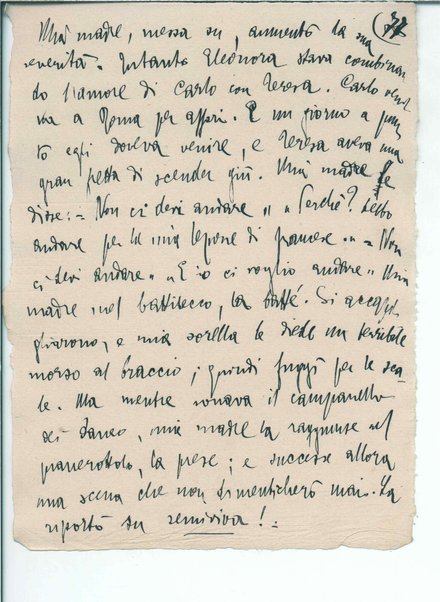 37
Mia madre, messa su, aumentò la sua
severità. Intanto Eleonora stava combinan
do l'amore di Carlo con Teresa. Carlo veni
va a Roma per affari. E un giorno a pun
to egli doveva venire, e Teresa aveva una
gran fretta di scender giù. Mia madre le
disse: - Non ci devi andare " " Perché? debbo
andare per la mia lezione di francese. " - Non
ci devi andare " " E io ci voglio andare " Mia
madre nel battibecco, la batté. Si accapi
gliarono, e mia sorella le diede un terribile
morso al braccio; quindi fuggì per le sca
le. Ma mentre sonava il campanello
dei Janeo, mia madre la raggiunse sul
pianerottolo, la prese; e successe allora
una scena che non dimenticherò mai. La
riportò su semiviva! -